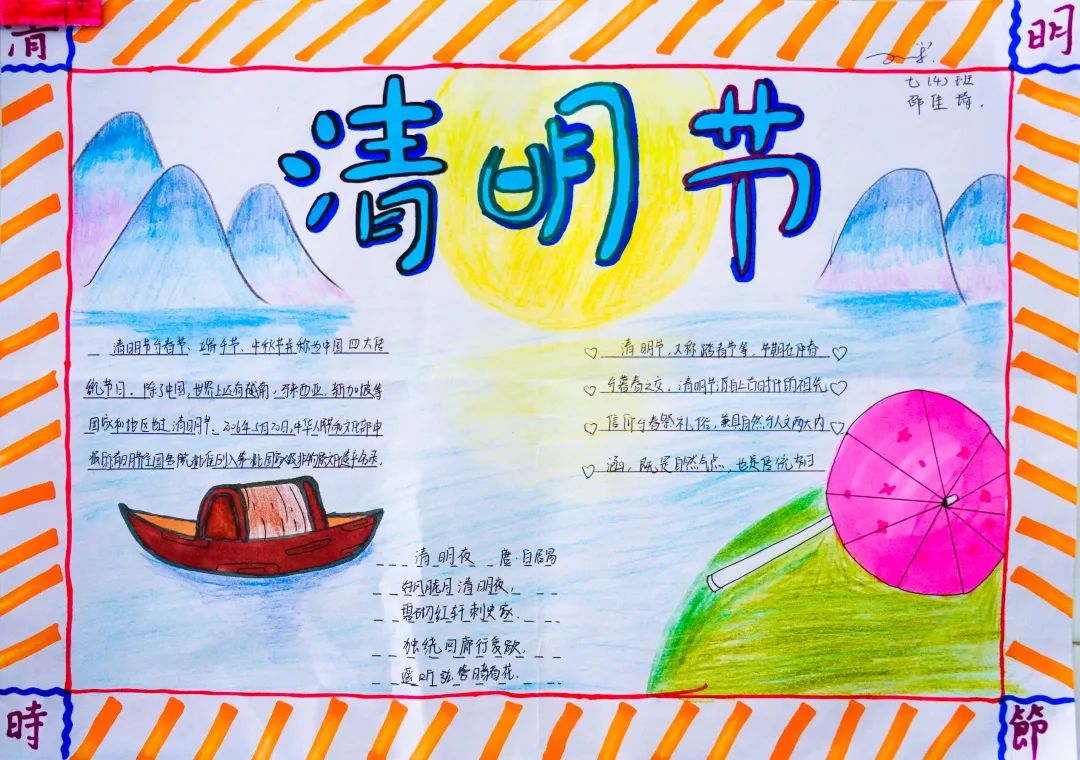 清
明
七(4)班
清明节
清明节与春节、端午节、中秋节并称为中国四大传
统节日。除了中国,世界上还有越南、马来西亚、新加坡等
国家和地区也过清明节。2006年5月20日,中华人民 文化部申
报的清明节 国务院批准列入第一批国家级非物质文化遗产名录.
清明节,又称踏青节等,节期在仲春
与暮春之交。清明节源自上古时代的祖先
信仰与春祭礼俗,兼具自然与人文两大内
涵,既是自然气点,也是传统节日
清明夜 唐·白居易
好风胧月清明夜,
碧砌红轩刺史家.
独绕回廊行复歇.
遥听弦管暗看花.
時
節